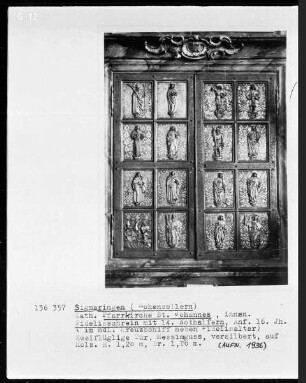 G 12
136 357
Sigmaringen ( Hohenzollern)
Kath. Pfarrkirche St. Johannes , innen.
Fidelisschrein mit 14. Nothelfern, Anf. 16. Jh.
( im ndl. Kreuzschiff neben Fidelisaltar)
Zweiflüglige Tür, Messingguss, versilbert, auf
Holz. H. 1,20 m, Br. 1,20 m. (AUFN. 1936)